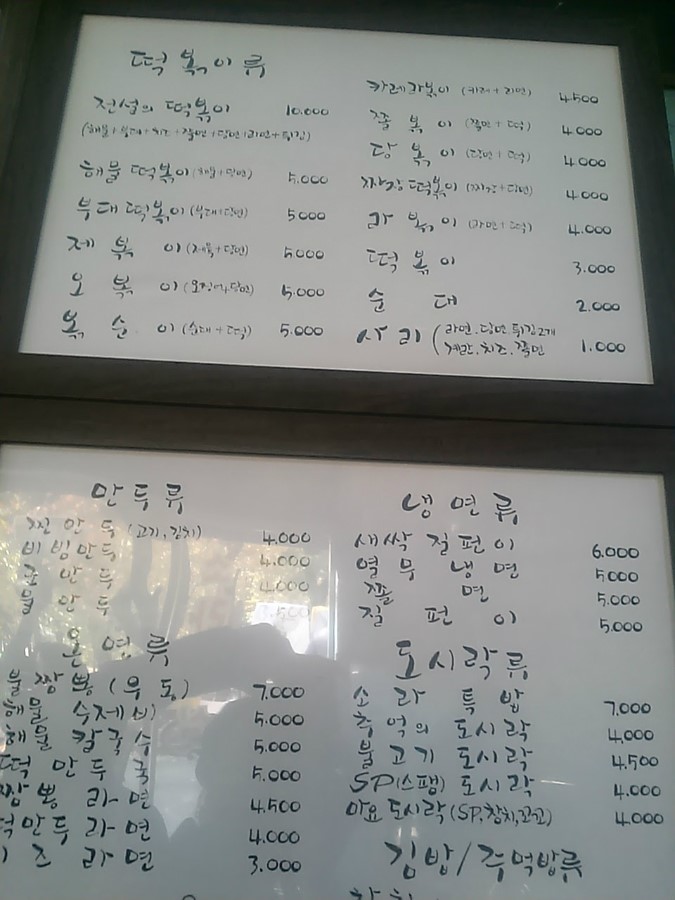 떡볶이류
전설의 떡볶이 10.000
(해물+부대+치즈+쫄면+당면+라면+튀김)
해물 떡볶이 (해물+당면) 5.000
부대 떡볶이 (부대+당면) 5000
제 볶 이 (제육+당면) 5.000
오 볶 이 (오징어+당면) 5.000
볶 순 이 (순대+떡) 5.000
카레라볶이 (카레+라면) 4500
쫄 볶 이 (쫄면+떡) 4.000
당 볶 이 (당면+떡) 4.000
짜장떡볶이 (짜장+당면) 4.000
라 볶 이 (라면+떡) 4.000
떡 볶 이 3.000
순 대 2.000
사 리 (라면.당면.튀김2개
계란.치즈.쫄면 1.000
만두류
찐 만 두 (고기,김치) 4.000
비빔만두 4.000
군 만 두 4.000
물 만 두
온면류
불짬뽕(우동) 7.000
해물 수제비 5.000
해물 칼국수 5.000
떡 만 두 국 5.000
짬뽕 라면 4.500
떡만두 라면 4.000
치즈라면 3.000
냉면류
새싹 질편이 6.000
열 무 냉 면 5000
쫄 면 5.000
질 편 이 5.000
도시락류
소라 특밥 7.000
추억의 도시락 4,000
불고기 도시락 4.500
SP(스팸) 도시락 4.000
마요 도시락 (SP,참치,고기) 4.000
김밥/주먹밥류